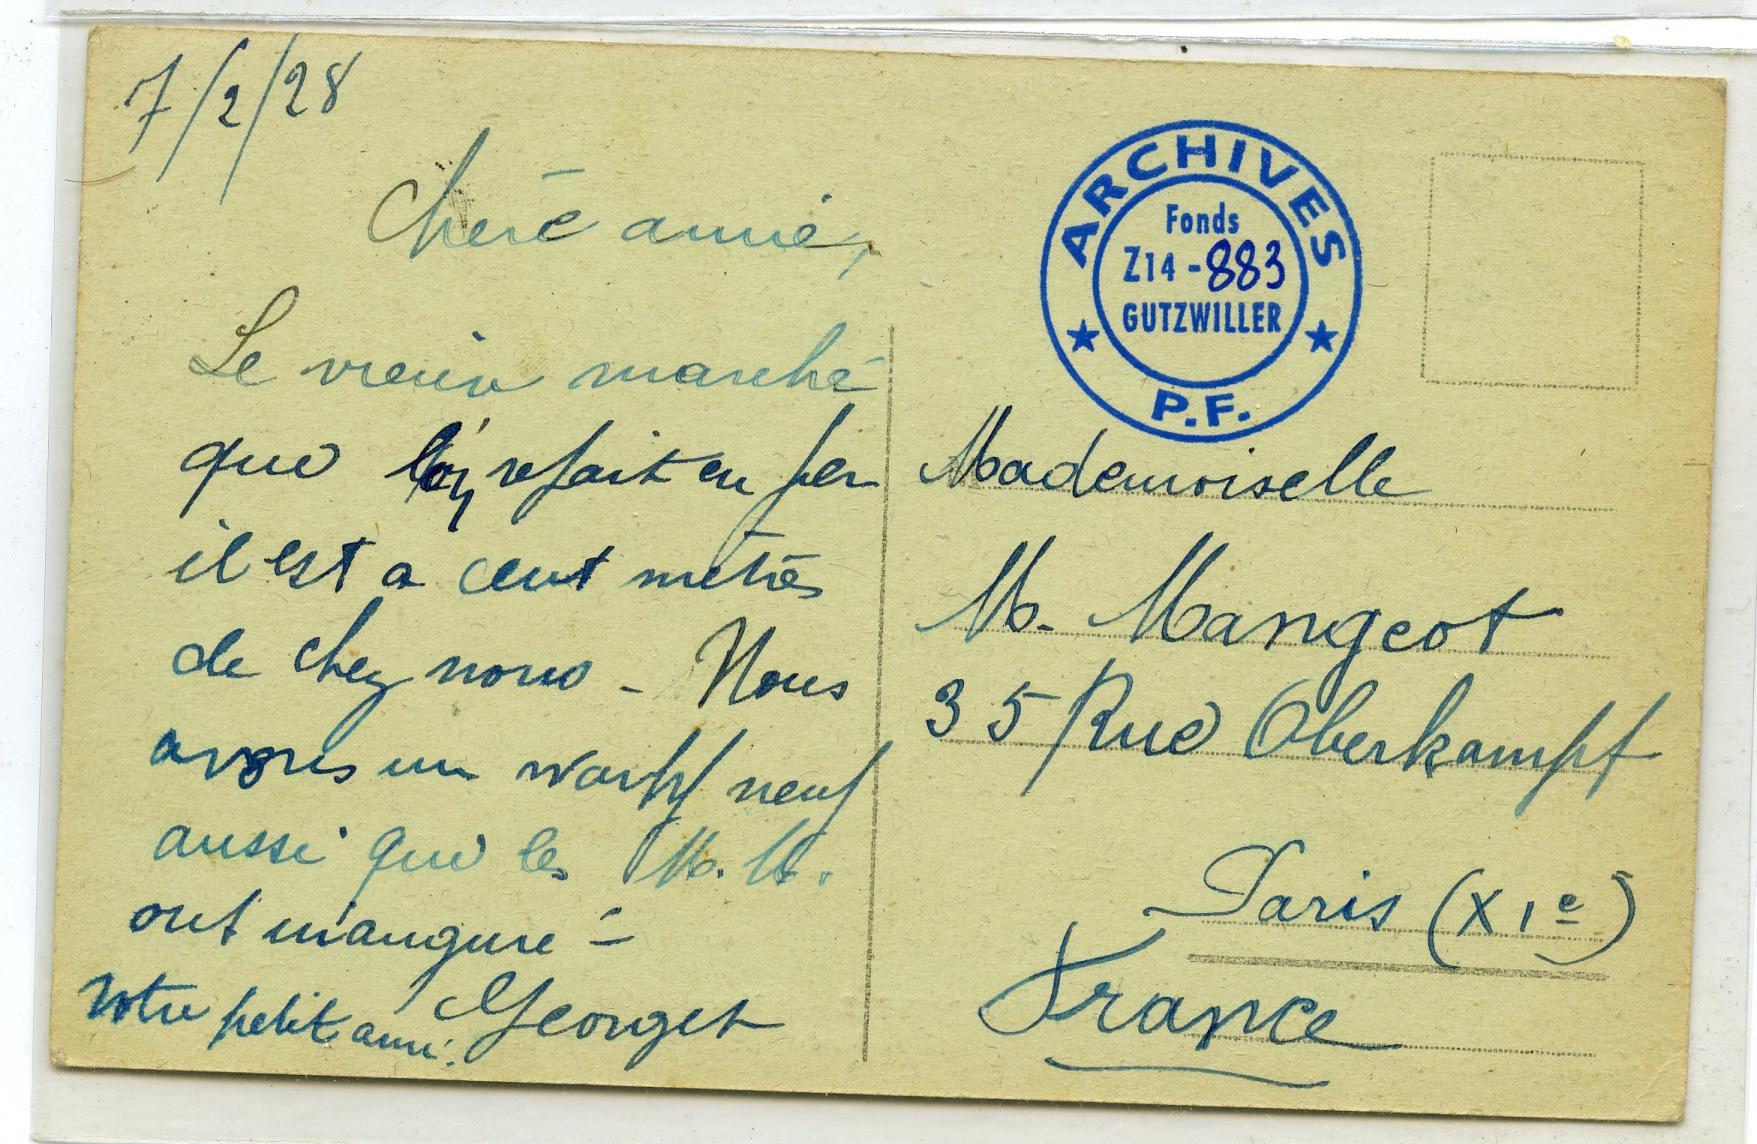 7/2/28
Chère amie,
Le vieux marché
que l'on refait en fer
il est a cent mètres
de chez nous - Nous
avons un warf neuf
aussi que les M. M.
ont inauguré -
Votre petit ami. Georget
ARCHIVES
Fonds
Z14 - 883
GUTZWILLER
P.F.
Mademoiselle
M. Mangeot
35 Rue Oberkampf
Paris (XIe)
France